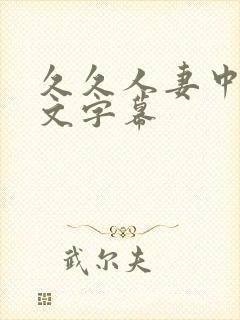 久久人妻中
文字幕
武尔夫